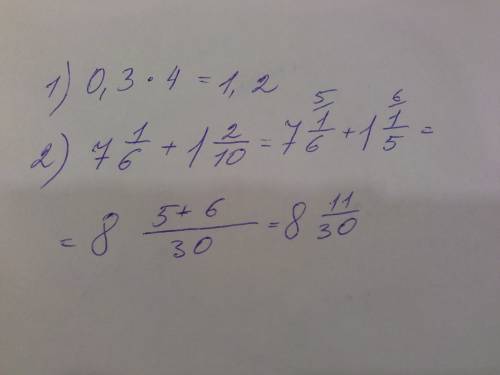 1) 0,3 · 4 = 1,2
2) 7 1/6 + 1 2/10 = 7 1/6 ⁵ + 1 1/5 ⁶ =
= 8 (5+6)/30 = 8 11/30